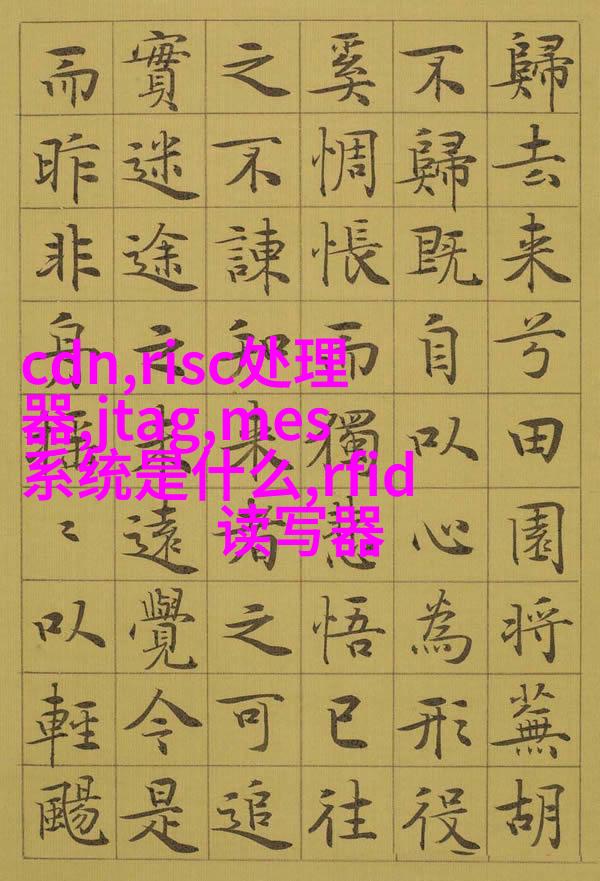 歸去来兮田園将蕪胡
不歸既自以心為形役
奚惆悵而獨悲悟已往
之不諫知来者之可追
實迷途之未遠覺今是
而昨非舟摇〻以輕颺
cdn,risc处理
器,jtag,mes
系统是什么,rfid
读写器